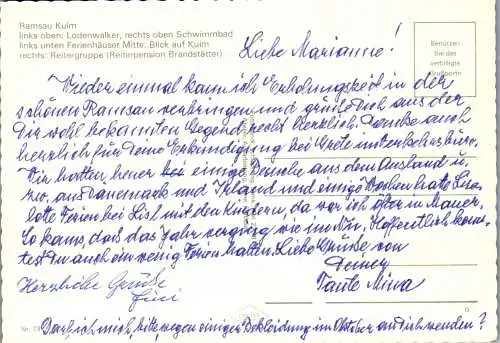 Ramsau Kulm
links oben: Lodenwalker, rechts oben Schwimmbad
links unten Ferienhäuser Mitte: Blick auf Kulm
rechts: Reitergruppe (Reiterpension Brandstätter)
Benützen Sie das verbilligte Grußporto
Liebe Marianne!
Wieder einmal kann ich Erholungszeit in der
schönen Ramsau verbringen und grüße Dich aus der
Dir wohl bekannten Gegend recht herzlich. Danke auch
herzlich für Deine Erkundigung bei Grete
Wir hatten heuer einige Besuche aus dem Ausland u.
zw. aus Dänemark und Irland und einige Wochen hatte Lise-
lotte Ferien bei Lisl mit den Kindern, da war ich öfter in Mauer.
So kams, daß das Jahr verging wie im Nu. Hoffentlich konn-
test Du auch ein wenig Ferien halten. Liebe Grüße von
Deiner
Tante Mina
Herzliche Grüße
Fini
Nr.
Darf ich mich, bitte, wegen einiger Bekleidung im Oktober an dich wenden?